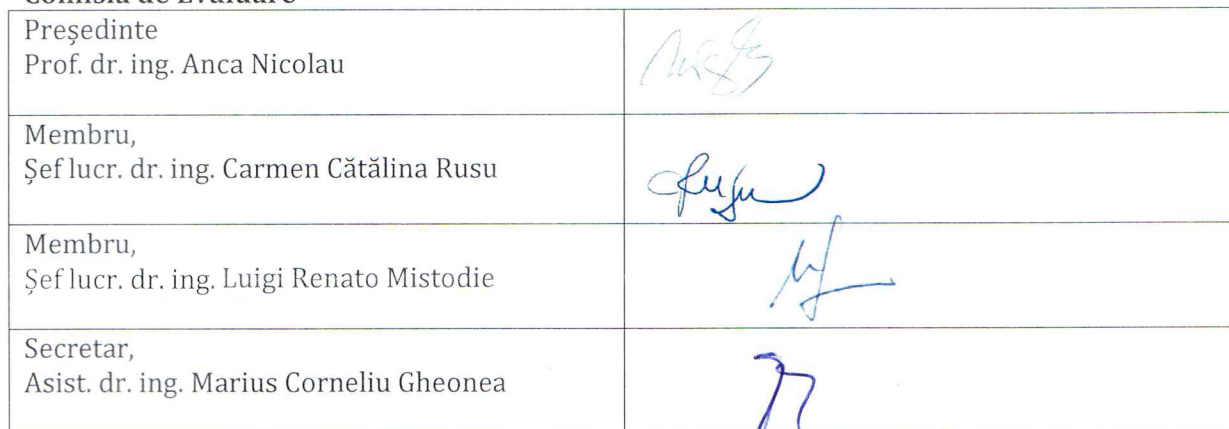 Comisia de Evaluare
Președinte
Prof. dr. ing. Anca Nicolau
Membru,
Șef lucr. dr. ing. Carmen Cătălina Rusu
Membru,
Șef lucr. dr. ing. Luigi Renato Mistodie
Secretar,
Asist. dr. ing. Marius Corneliu Gheonea